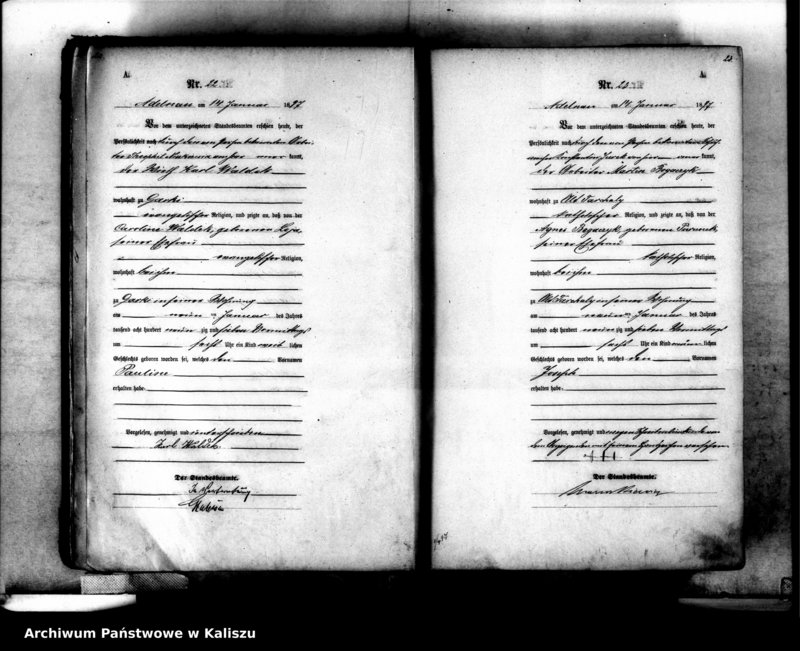 A.
Nr. 22.
Adelnau am 14. Januar 1897
Vor dem unterzeichneten Standesbeamten erschien heute, der
Persönlichkeit nach durch den
kannt,
der Wirth Karl Waldek
wohnhaft zu Garki
evangelischer Religion, und zeigte an, daß von der
Caroline Waldek, geborenen
seiner Ehefrau
evangelischer Religion,
wohnhaft bei ihm
zu Garki in seiner Wohnung
am neun ten Januar des Jahres
tausend acht hundert neun zig und sieben Vormittags
um sechs Uhr ein Kind weib lichen
Geschlechts geboren worden sei, welches den Vornamen
Pauline
erhalten habe.
Vorgelesen, genehmigt und unterschrieben
Karl Waldek
Der Standesbeamte.
In Vertretung
22
A.
Nr. 23.
Adelnau am 14. Januar 1897
Vor dem unterzeichneten Standesbeamten erschien heute, der
Persönlichkeit nach durch den
kannt,
der Arbeiter Martin Bogaczyk
wohnhaft zu Alt Tarchaly
katholischer Religion, und zeigte an, daß von der
Agnes Bogaczyk, geborenen
seiner Ehefrau
katholischer Religion,
wohnhaft bei ihm
zu Alt Tarchaly in seiner Wohnung
am neun ten Januar des Jahres
tausend acht hundert neun zig und sieben Vormittags
um sechs Uhr ein Kind männ lichen
Geschlechts geboren worden sei, welches den Vornamen
Joseph
erhalten habe.
Vorgelesen, genehmigt und wegen Schreibensunkunde von
dem Anzeigenden mit seinem Handzeichen versehen.
+++
Der Standesbeamte.
Archiwum Państwowe w Kaliszu